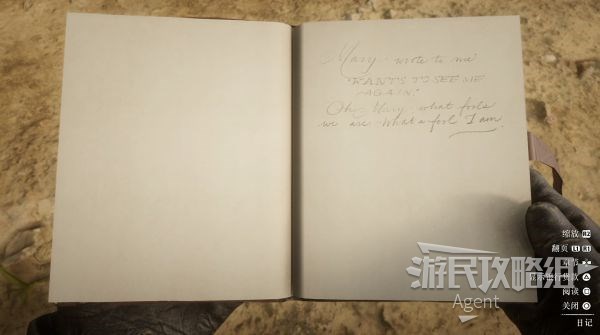 Mary wrote to me
"WANTS TO SEE ME
AGAIN."
Oh Mary what fools
we are. What a fool I am.
缩放 R2
翻页 L1 R1
阅读
关闭
日记
游民攻略组
Agent